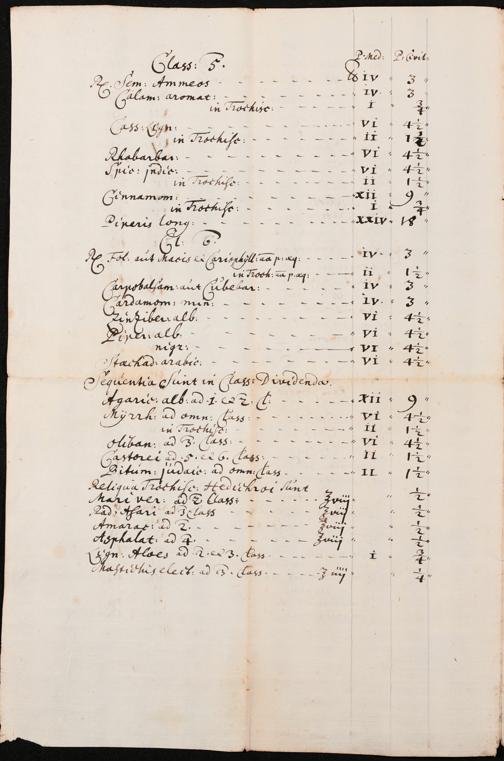 Class: 5. P: Med: P: Civit:
℞. Sem: Ammeos ℥ iv 3
Calam: aromat: iv 3
in Trochisc: i 3/4
Cass: Lign: vi 4 1/2
in Trochisc: ii 1 1/2
Rhabarbar: vi 4 1/2
Spic: jndic: vi 4 1/2
in Trochisc: ii 1 1/2
Cinnamom: xii 9
in Trochisc: i 3/4
Piperis long: xxiv 18
Cl: 6.
℞ Fol: aut Macis et Cariophyll: aa p: æq: iv 3
in Troch: aa p: æq: ii 1 1/2
Carpobalsam: aut Cubebar: iv 3
Cardamom: min: iv 3
Zinziber: alb: vi 4 1/2
Piper: alb: vi 4 1/2
nigr: vi 4 1/2
Stæchad: arabic: vi 4 1/2
Sequentia Sunt in Class: Dividenda.
Agaric: alb: ad 1 et 2 Cl: xii 9
Myrrh: ad omn: Class: vi 4 1/2
in Trochisc: ii 1 1/2
Oliban: ad 3: Class: vi 4 1/2
Castorei ad 5. et 6. Class: ii 1 1/2
Bitum: judaic: ad omn: Class ii 1 1/2
Reliqua Trochisc: Hedichroi Sunt
Mari ver: ad 2 Class: ʒ viij 1/2
Rad: Asari ad 3 Class ʒ viij 1/2
Amarac: ad 2. ʒ viij 1/2
Asphalat: ad 4. ʒ viij 1/2
Lign: Aloes ad 2. et 3. Class i 3/4
Mastichis elect: ad 3. Class ʒ iiij 1/4